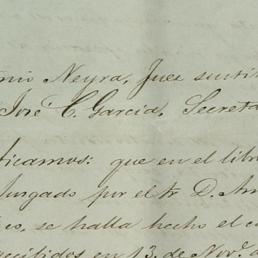 nio Neyra, Juez sustit
José C. Garcia, Secreta
ticamos: que en el libro
Juzgado por el Sr D. An
se halla hecho el
13 de Nov.e